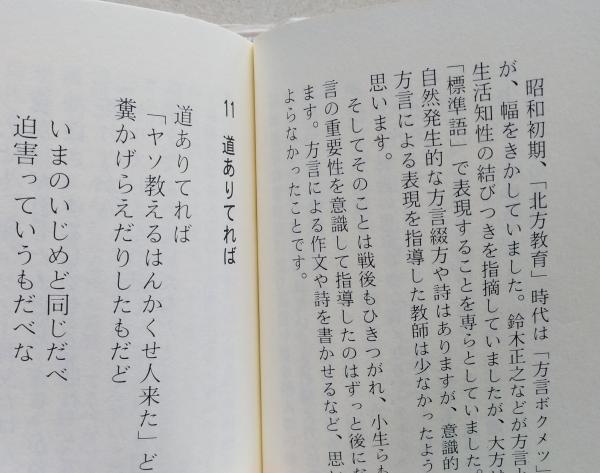 昭和初期、「北方教育」時代は「方言ボクメツ」
が、幅をきかしていました。鈴木正之などが方言と
生活知性の結びつきを指摘していましたが、大方は
「標準語」で表現することを専らとしていました。
自然発生的な方言綴方や詩はありますが、意識的
方言による表現を指導した教師は少なかったよう
思います。
そしてそのことは戦後もひきつがれ、小生らも
言の重要性を意識して指導したのはずっと後にな
ます。方言による作文や詩を書かせるなど、思い
よらなかったことです。
11 道ありてれば
道ありてれば
「ヤソ教えるはんかくせ人来た」ど
糞かげらえだりしたもだど
いまのいじめど同じだべ
迫害っていうもだべな